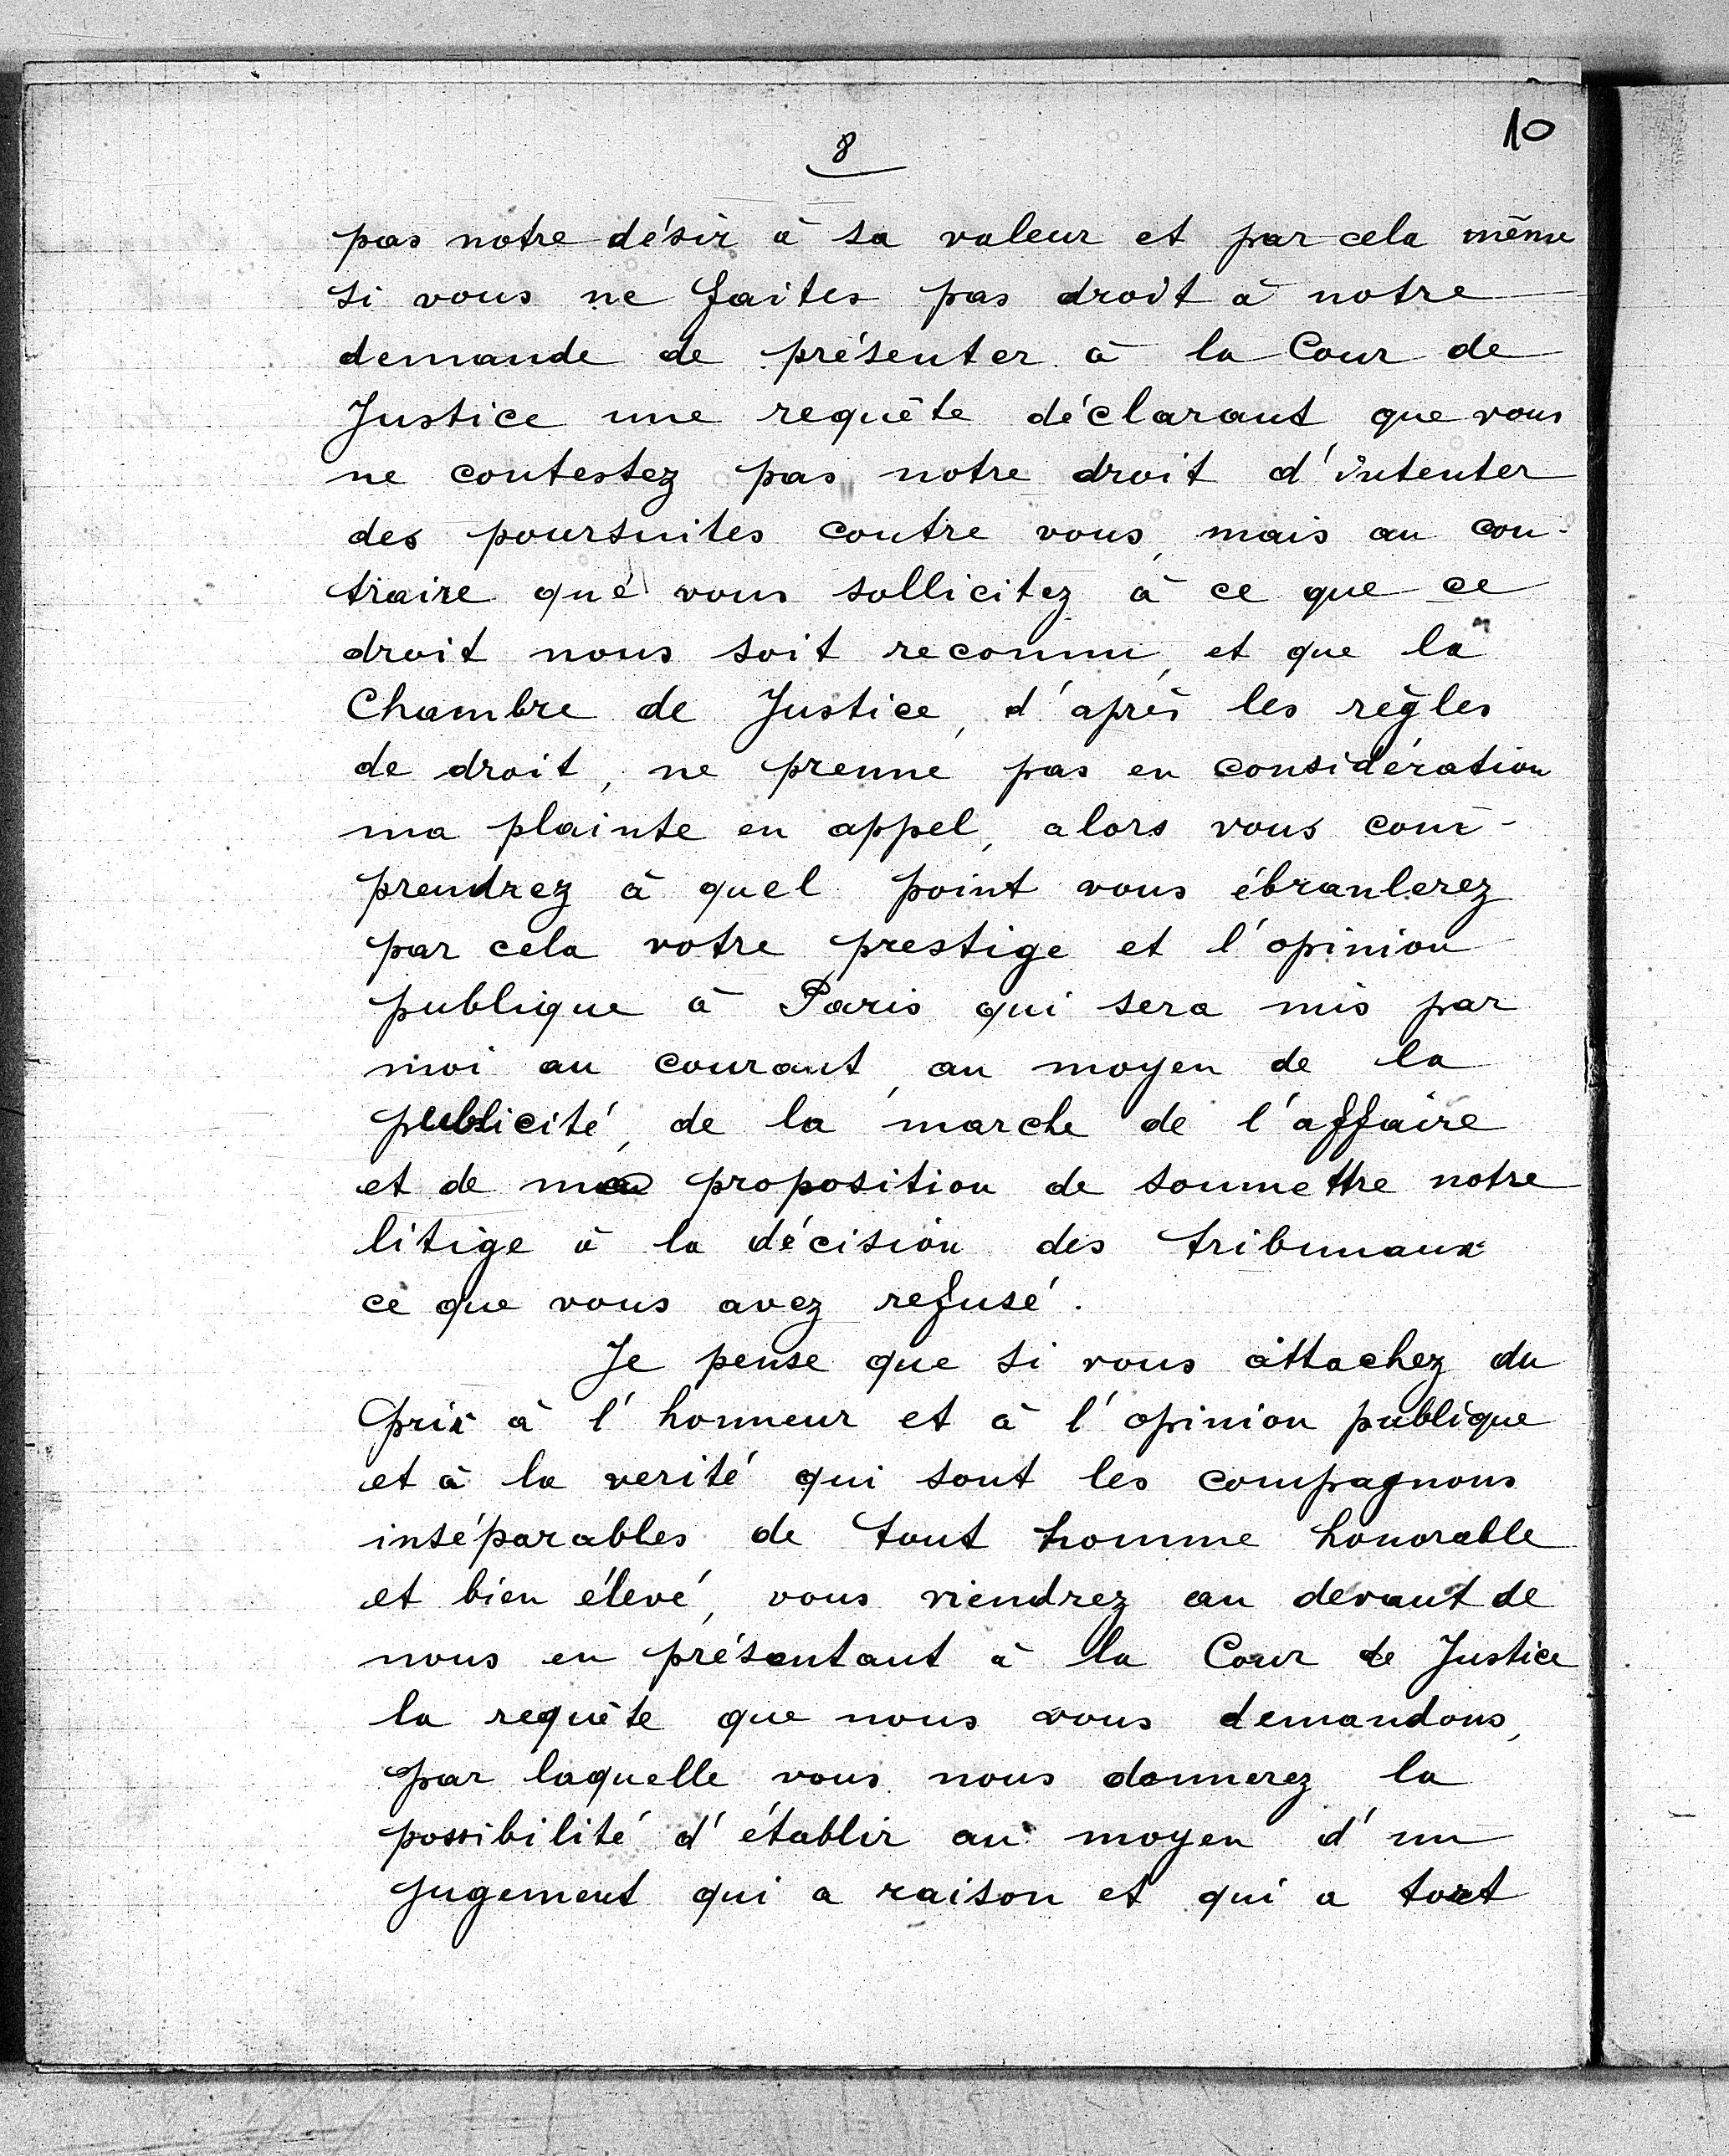 10
8
pas notre désir à sa valeur et par cela même
si vous ne faites pas droit à notre
demande de présenter à la Cour de
Justice une requête déclarant que vous
ne contestez pas notre droit d'intenter
des poursuites contre vous, mais au con-
traire que vous sollicitez à ce que ce
droit nous soit reconnu, et que la
Chambre de Justice, d'après les règles
de droit, ne prenne pas en considération
ma plainte en appel, alors vous com-
prendrez à quel point vous ébranlerez
par cela votre prestige et l'opinion
publique à Paris qui sera mis par
moi au courant, au moyen de la
publicité, de la marche de l'affaire
et de ma proposition de soumettre notre
litige à la décision des tribunaux
ce que vous avez refusé.
Je pense que si vous attachez du
prix à l'honneur et à l'opinion publique
et à la verité qui sont les compagnons
inséparables de tout homme honorable
et bien élevé, vous viendrez au devant de
nous en présentant à la Cour de Justice
la requête que nous vous demandons,
par laquelle vous nous donnerez la
possibilité d'établir au moyen d'un
jugement qui a raison et qui a tort